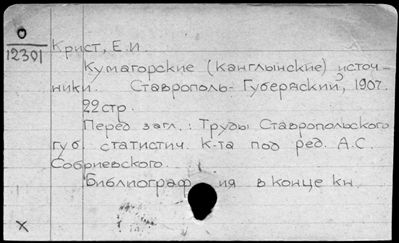 О
12301
Крист, Е.И.
Кумагорские (Канглынские) источ-
ники. Ставрополь-Губернский, 1907.
22 стр.
Перед загл.: Труды Ставропольского
губ. статистич. К-та под ред. А.С.
Собриевского.
Библиография в конце кн.
X